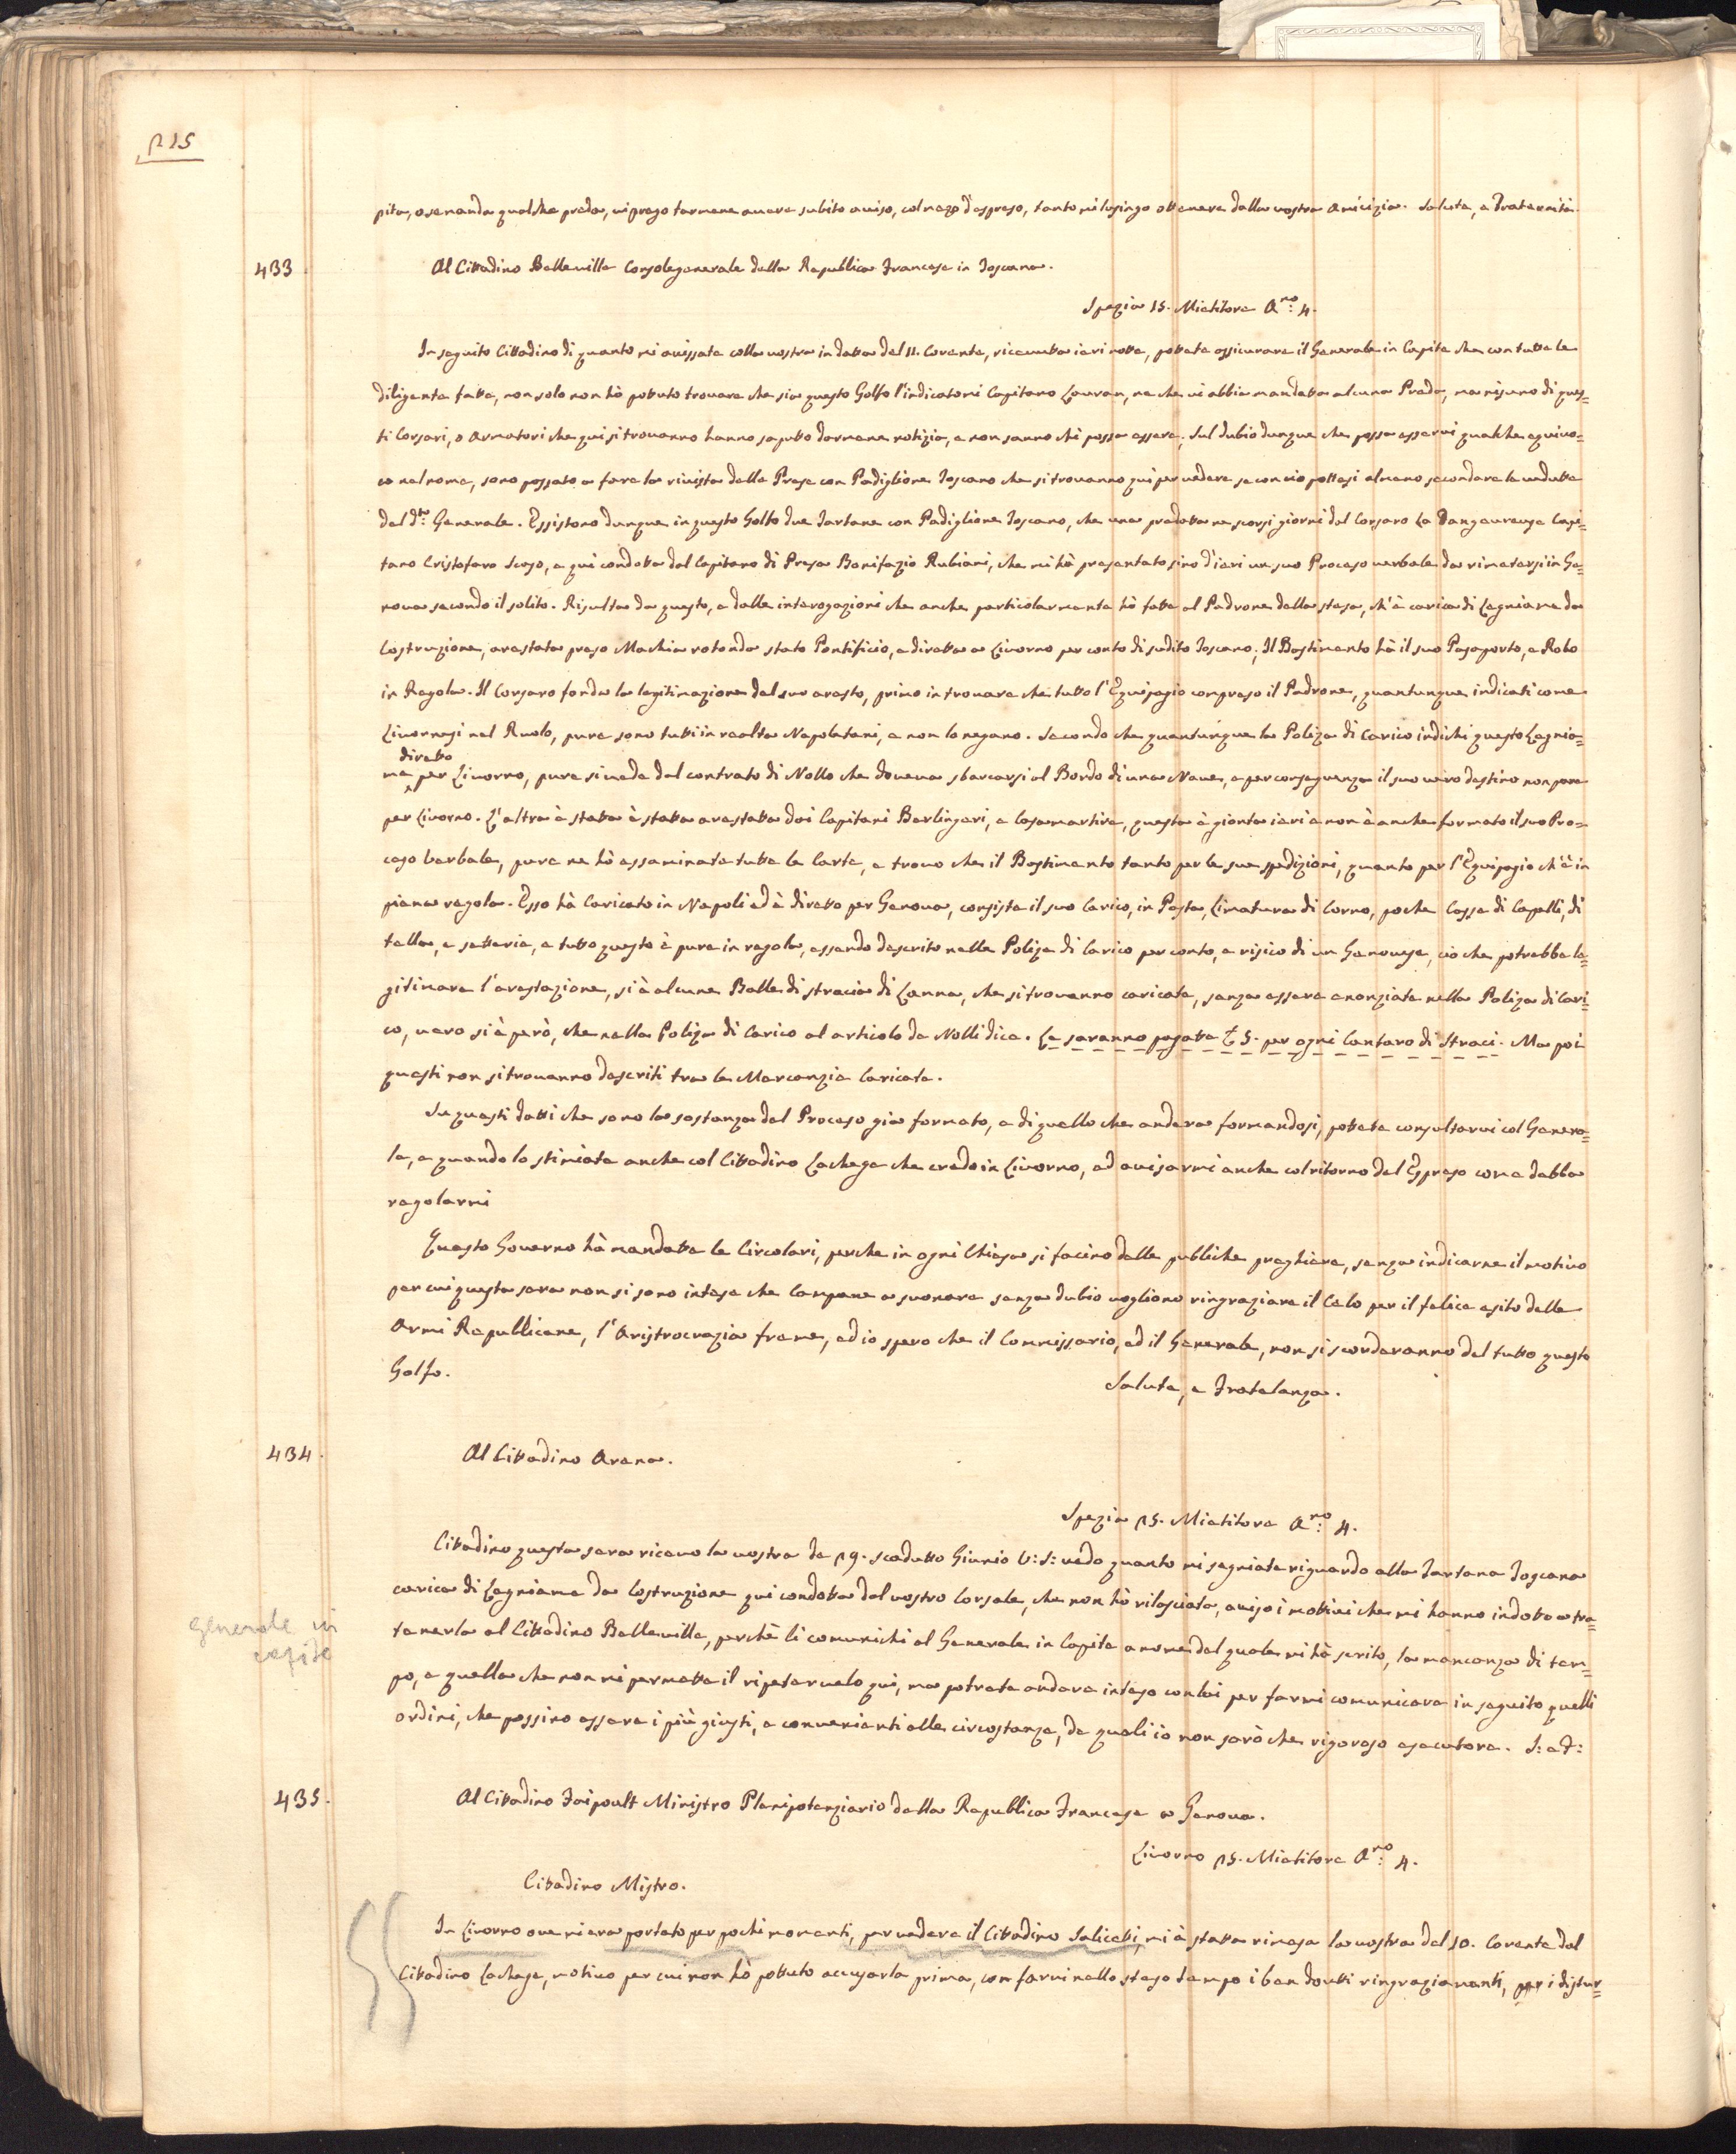 215
pita, o se manda qualche preda, vi prego farmene avere subito aviso, col mezo d'espreso, tanto mi lusingo ottenere dalla vostra amicizia. Salute, e Fraternità.
433 Al Cittadino Belleville Consolegenerale della Republica Francese in Toscana.
Spezia 15. Mietitore A.no 4.
In seguito Cittadino di quanto mi avissate colla vostra in datta del 11. Corente, ricevutta ieri notte, pottete assicurare il Generale in Capite che con tutte le
diligente fatte, non solo non hò potuto trovare che sia questo Golfo l'indicatomi Capitano Lauvan, ne che vi abbia mandatta alcuna Preda, ma nisuno di ques=
ti Corsari, o Armatori che qui si trovanno hanno saputto darmene notizia, e non sanno chi possa essere. Sul dubio dunque che possa esservi qualche equivo=
co nel nome, sono passato a fare la rivista delle Prese con Padiglione Toscano che si trovanno qui per vedere se con cio pottesi almeno secondare le vedutte
del d.to Generale. Essistono dunque in questo Golfo due Tartane con Padiglione Toscano, che una predatta ne scorsi giorni dal Corsaro La Dangeureuse Capi=
tano Cristofaro Scaso, e qui condotta dal Capitano di Presa Bonifazio Rubiani, che mi hà presentato sino d'ieri un suo Proceso verbale da rimetersi in Ge=
nova secondo il solito. Risulta da questo, e dalle interogazioni che anche particolarmente hò fatte al Padrone della stesa, ch'è carica di Legniame da
Costruzione, arestata preso Machia rotonda stato Pontificio, e diretta a Livorno per conto di sudito Toscano; Il Bastimento hà il suo Pasaporto, e Rolo
in Regola. Il Corsaro fonda la legitimazione del suo aresto, primo in trovare che tutto l'Equipagio compreso il Padrone, quantunque indicati come
Livornesi nel Ruolo, pure sono tutti in realta Napoletani, e non lo negano. Secondo che quantunque la Poliza di Carico indichi questo Legnia=
me diretto per Livorno, pure si vede dal contrato di Nollo che doveva sbarcarsi al Bordo di una Nave, e per conseguenza il suo vero destino non pare
per Livorno. L'altra è statta è statta arestatta dai Capitani Berlingeri, e Casamartire, questa è gionta ieri e non è anche formato il suo Pro=
ceso verbale, pure ne hò essaminate tutte le Carte, e trovo che il Bastimento tanto per le sue spedizioni, quanto per l'Equipagio ch'è in
piena regola. Esso hà Caricato in Napoli ed è diretto per Genova, consiste il suo Carico, in Pasta, Limatura di Corno, poche Casse di Capelli, di
tella, e setteria, e tutto questo è pure in regola, essendo descrito nelle Polize di Carico per conto, e risico di un Genovese, ciò che potrebbe le=
gitimare l'arestazione, si è alcune Balle di stracia di Lanna, che si trovanno caricate, senza essere anonziate nella Poliza di Cari=
co, vero si è però, che nella Poliza di Carico al articolo de Nolli dice. Le saranno pagatte £ 5. per ogni Cantaro di Straci. Ma poi
questi non si trovanno descriti tra le Marcanzie Caricate.
Su questi datti che sono la sostanza del Proceso già formato, e di quello che andera formandosi, pottete consultarvi col Genera=
le, e quando lo stimiate anche col Cittadino Lachege che credo in Livorno, ed avisarmi anche col ritorno del Espreso come debba
regolarmi
Questo Governo hà mandatta le Circolari, perche in ogni Chiesa si facino delle publiche preghiere, senza indicarne il motivo
per cui questa sera non si sono intese che Campane a suonare senza dubio vogliono ringraziare il Celo per il felice esito delle
Armi Republicane, l'Aristrocrazia freme, ed io spero che il Commissario, ed il Generale, non si scorderanno del tutto questo
Golfo.
Salute, e Fratelanza.
434. Al Cittadino Arena.
Spezia 15. Mietitore A.no 4.
Cittadino questa sera ricevo la vostra de 19. scadutto Giunio V: S: vedo quanto mi segniate riguardo alla Tartana Toscana
carica di Legniame da Costruzione qui condotta dal vostro Corsale, che non hò rilasciata, aviso i motivi che mi hanno indotto a tra=
tenerla al Cittadino Belleville, perchè li comunichi al Generale in Capite a nome del quale mi hà scrito, la mancanza di tem=
po, e quella che non mi permette il ripetervelo qui, ma potrete andare inteso con lui per farmi comunicare in seguito quelli
ordini, che possino essere i più giusti, e convenienti alle circostanze, de quali io non sarò che rigoroso esecutore. S: e F:
generale in
capite
435. Al Cittadino Faipoult Ministro Plenipotenziario della Republica Francese a Genova.
Livorno 15. Mietitore A.no 4.
Cittadino Mistro.
In Livorno ove mi era portato per pochi momenti, per vedere il Cittadino Salicetti, mi è statta rimesa la vostra del 10. Corente dal
Cittadino Lachese, motivo per cui non hò pottuto accusarla prima, con farvi nello steso tempo i ben dovuti ringraziamenti, per i distur=